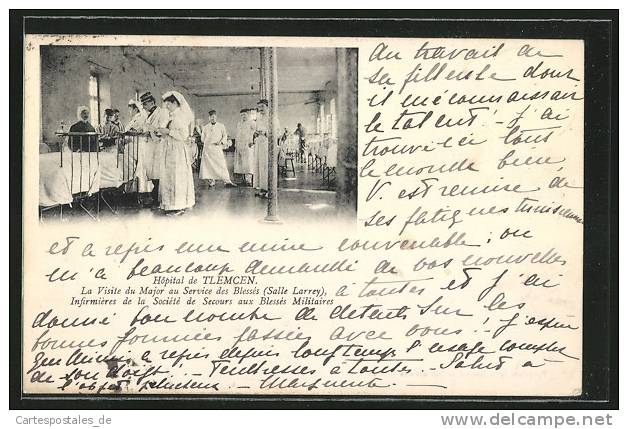 au travail de
sa filleule dont
il méconnaissait
le talent! J'ai
trouvé ici tout
le monde bien,
V. est remise de
ses fatigues tunisiennes
et a repris une mine convenable; on
m'a beaucoup demandé de vos nouvelles
Hôpital de TLEMCEN.
La Visite du Major au Service des Blessés (Salle Larrey),
à toutes et j'ai
Infirmières de la Société de Secours aux Blessés Militaires
donné bon nombre de détails sur les
bonnes journées passées avec vous! J'espère
que a repris depuis longtemps l'usage complet
de son doigt! - Tendresses à toutes. - Salut à
l'objet - Marguerite -
Cartespostales_de
www.delcampe.net